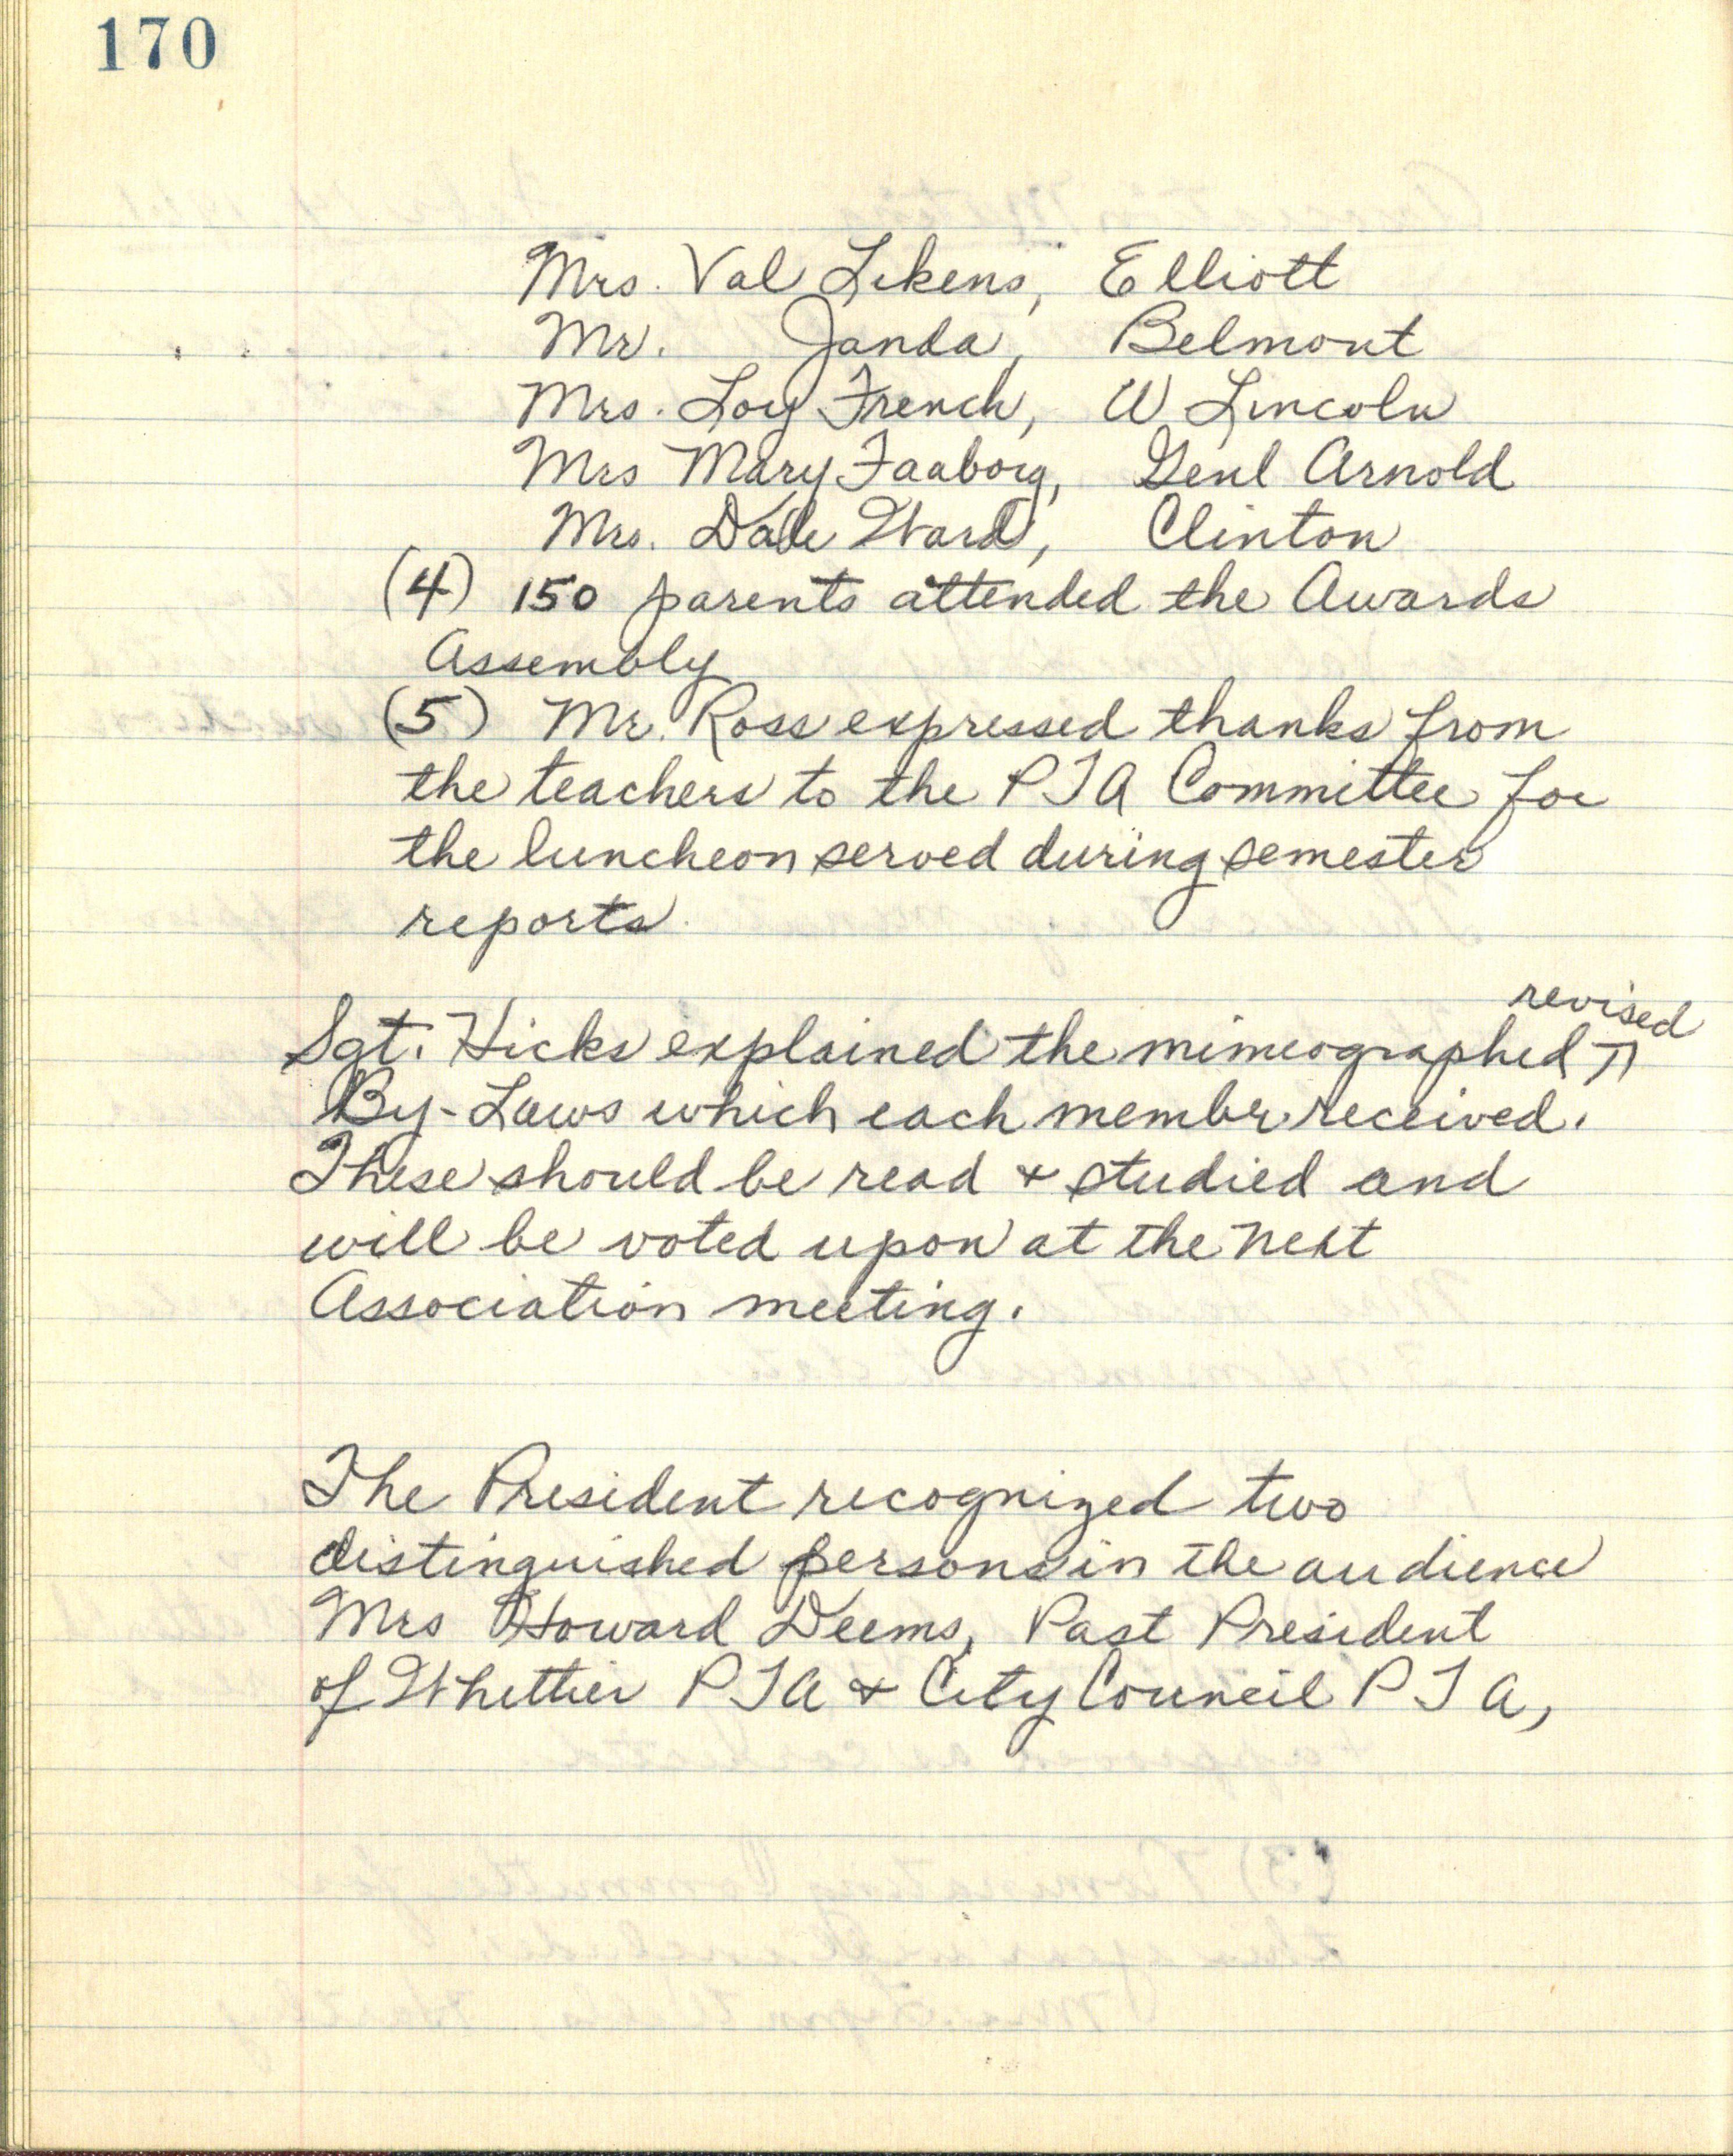 170
Mrs. Val Likens, Elliott
Mr. Janda, Belmont
Mrs. Loy French, W Lincoln
Mrs Mary Faaborg, Genl Arnold
Mrs. Dale Ward, Clinton
(4) 150 parents attended the Awards
Assembly
(5) Mr. Ross expressed thanks from
the teachers to the PTA Committee for
the luncheon served during semester
reports.
revised
Sgt. Hicks explained the mimeographed
By-Laws which each membr received.
These should be read & studied and
will be voted upon at the next
Association meeting.
The President recognized two
distinguished persons in the audience
Mrs Howard Deems, Past President
of Whittier PTA & City Council PTA,